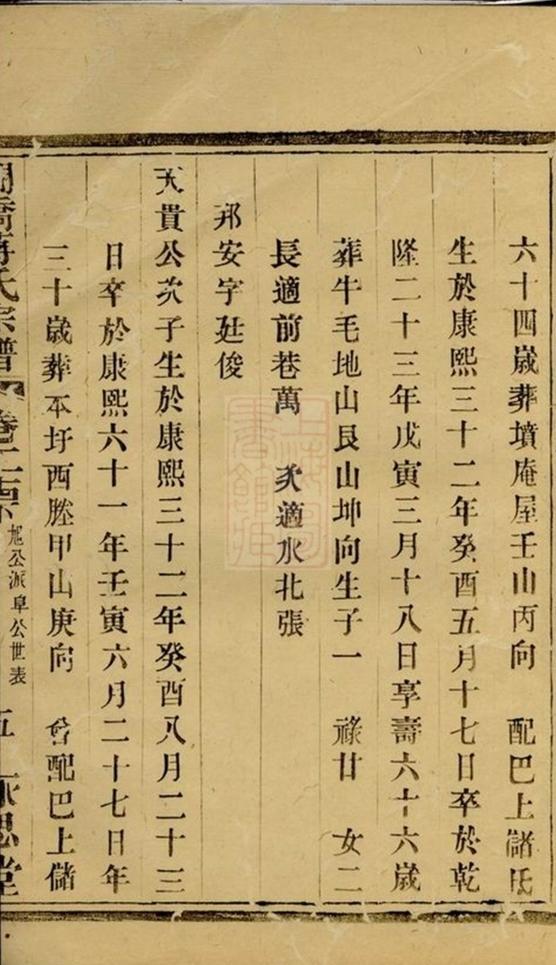 六十四歲葬墳庵屋壬山丙向 配巴上儲氏
生於康熙三十二年癸酉五月十七日卒於乾
隆二十三年戊寅三月十八日享壽六十六歲
葬牛毛地山艮山坤向生子一 祿廿 女二
長適前巷萬 次適水北張
邦安字廷俊
天貴公次子生於康熙三十二年癸酉八月二十三
日卒於康熙六十一年壬寅六月二十七日年
三十歲葬本圩西塍甲山庚向 配巴上儲
橋蔣氏宗譜
旭公派阜公世表
五
永思堂